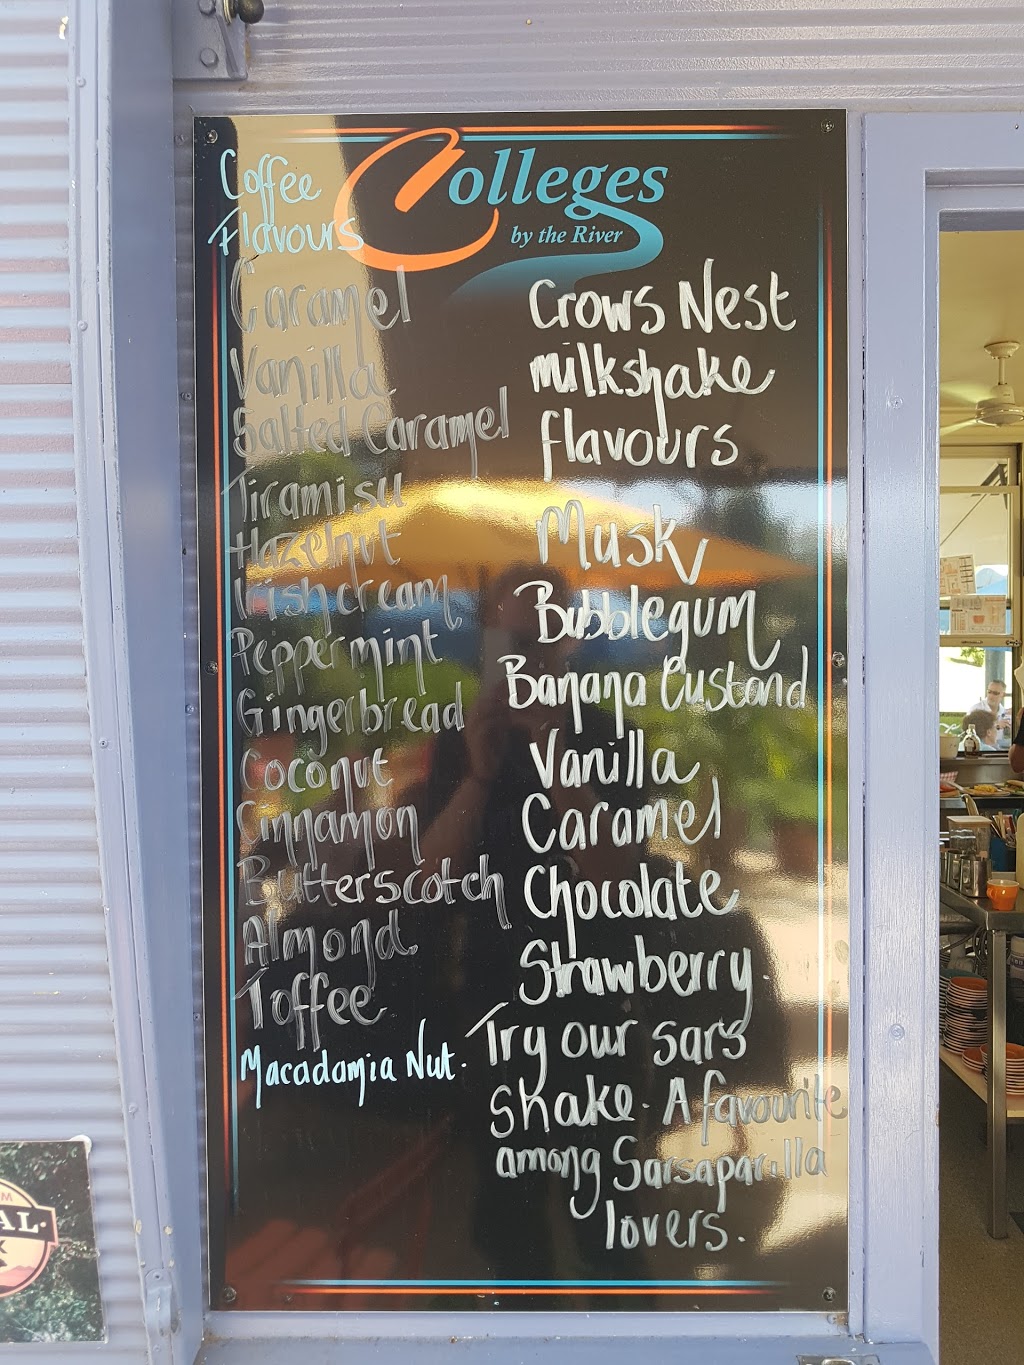 Colleges
by the River
Coffee
Flavours
Caramel
Vanilla
Salted Caramel
Tiramisu
Hazelnut
Irish cream
Peppermint
Gingerbread
Coconut
Cinnamon
Butterscotch
Almond
Toffee
Macadamia Nut.
Crows Nest
milkshake
flavours
Musk
Bubblegum
Banana Custard
Vanilla
Caramel
Chocolate
Strawberry
Try our sars
shake. A favourite
among Sarsaparilla
lovers.